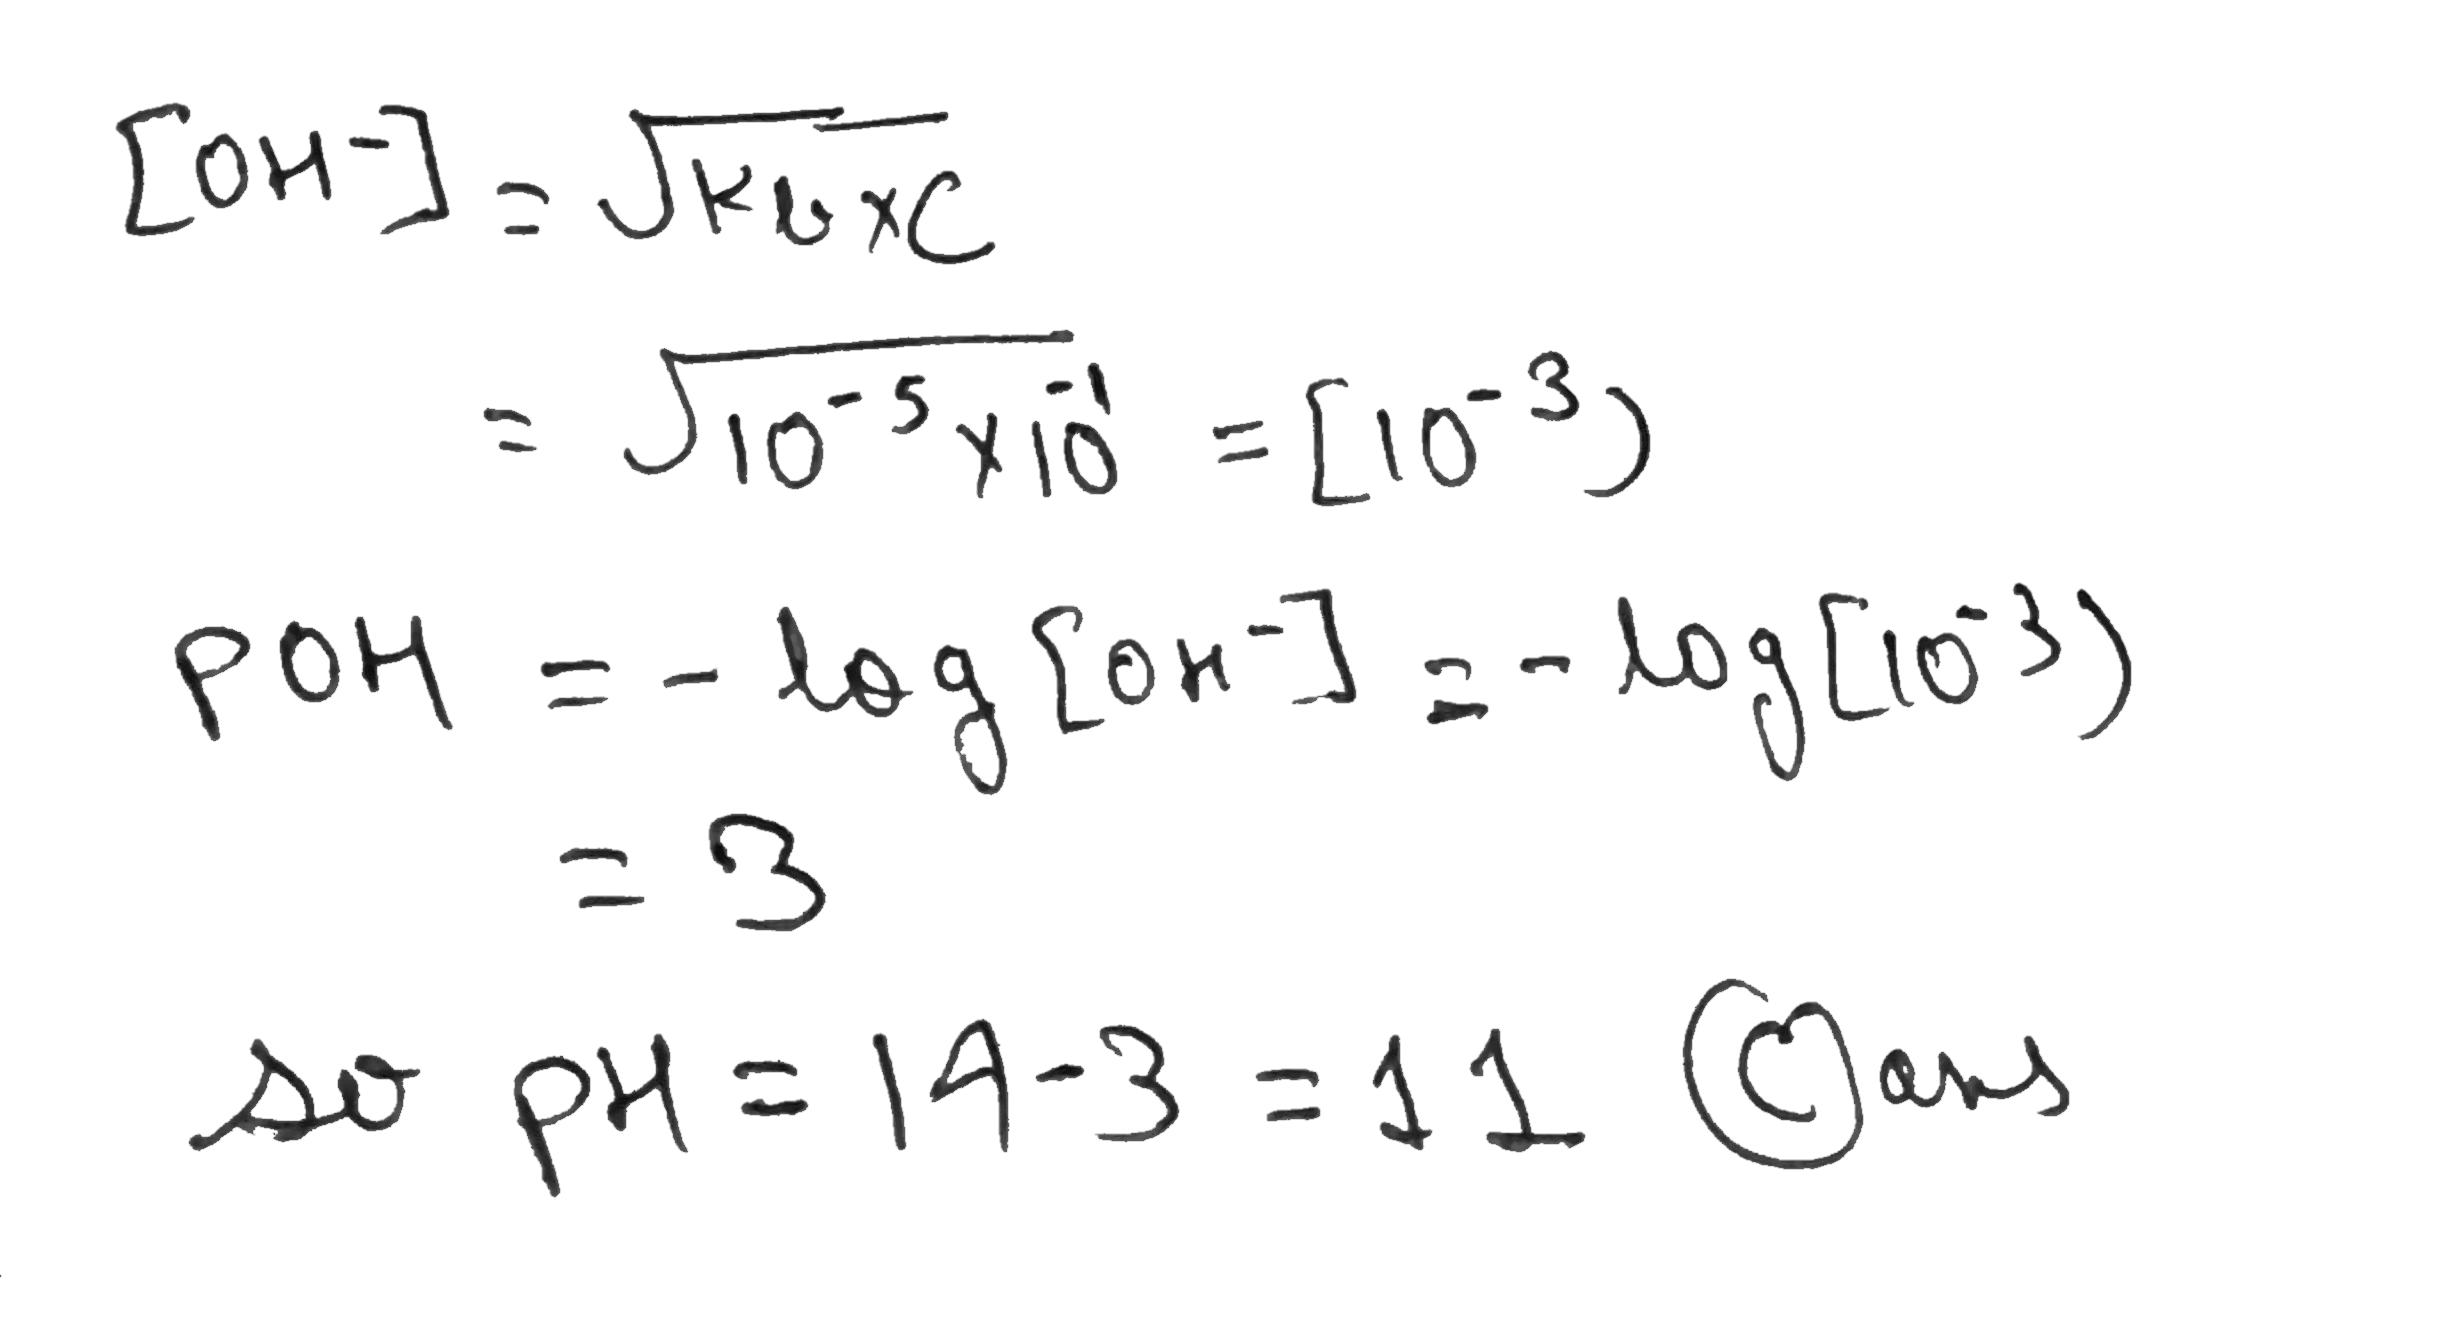 [OH⁻] = √Kb×C
= √10⁻⁵×10⁻¹ = [10⁻³)
POH = - log [OH⁻] = - log [10⁻³)
= 3
so pH = 14-3 = 11 (C) ans